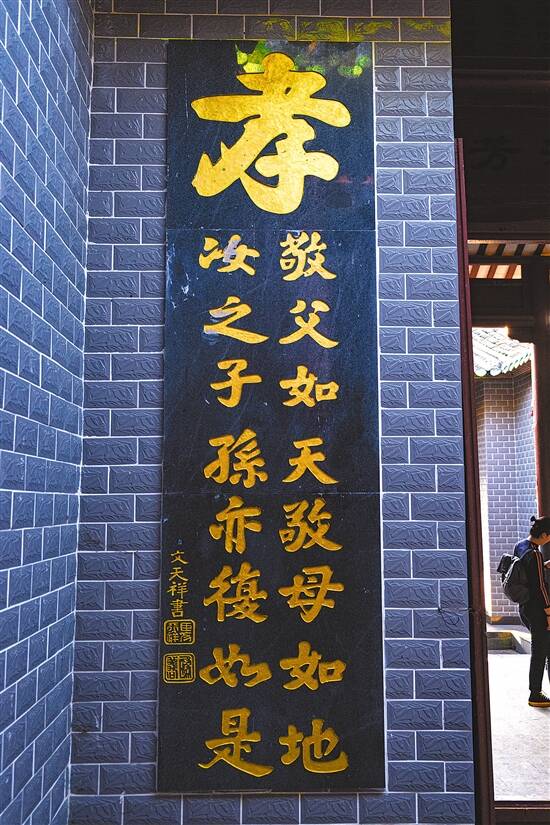 孝
敬父如天敬母如地
汝之子孫亦復如是
文天祥書
芳